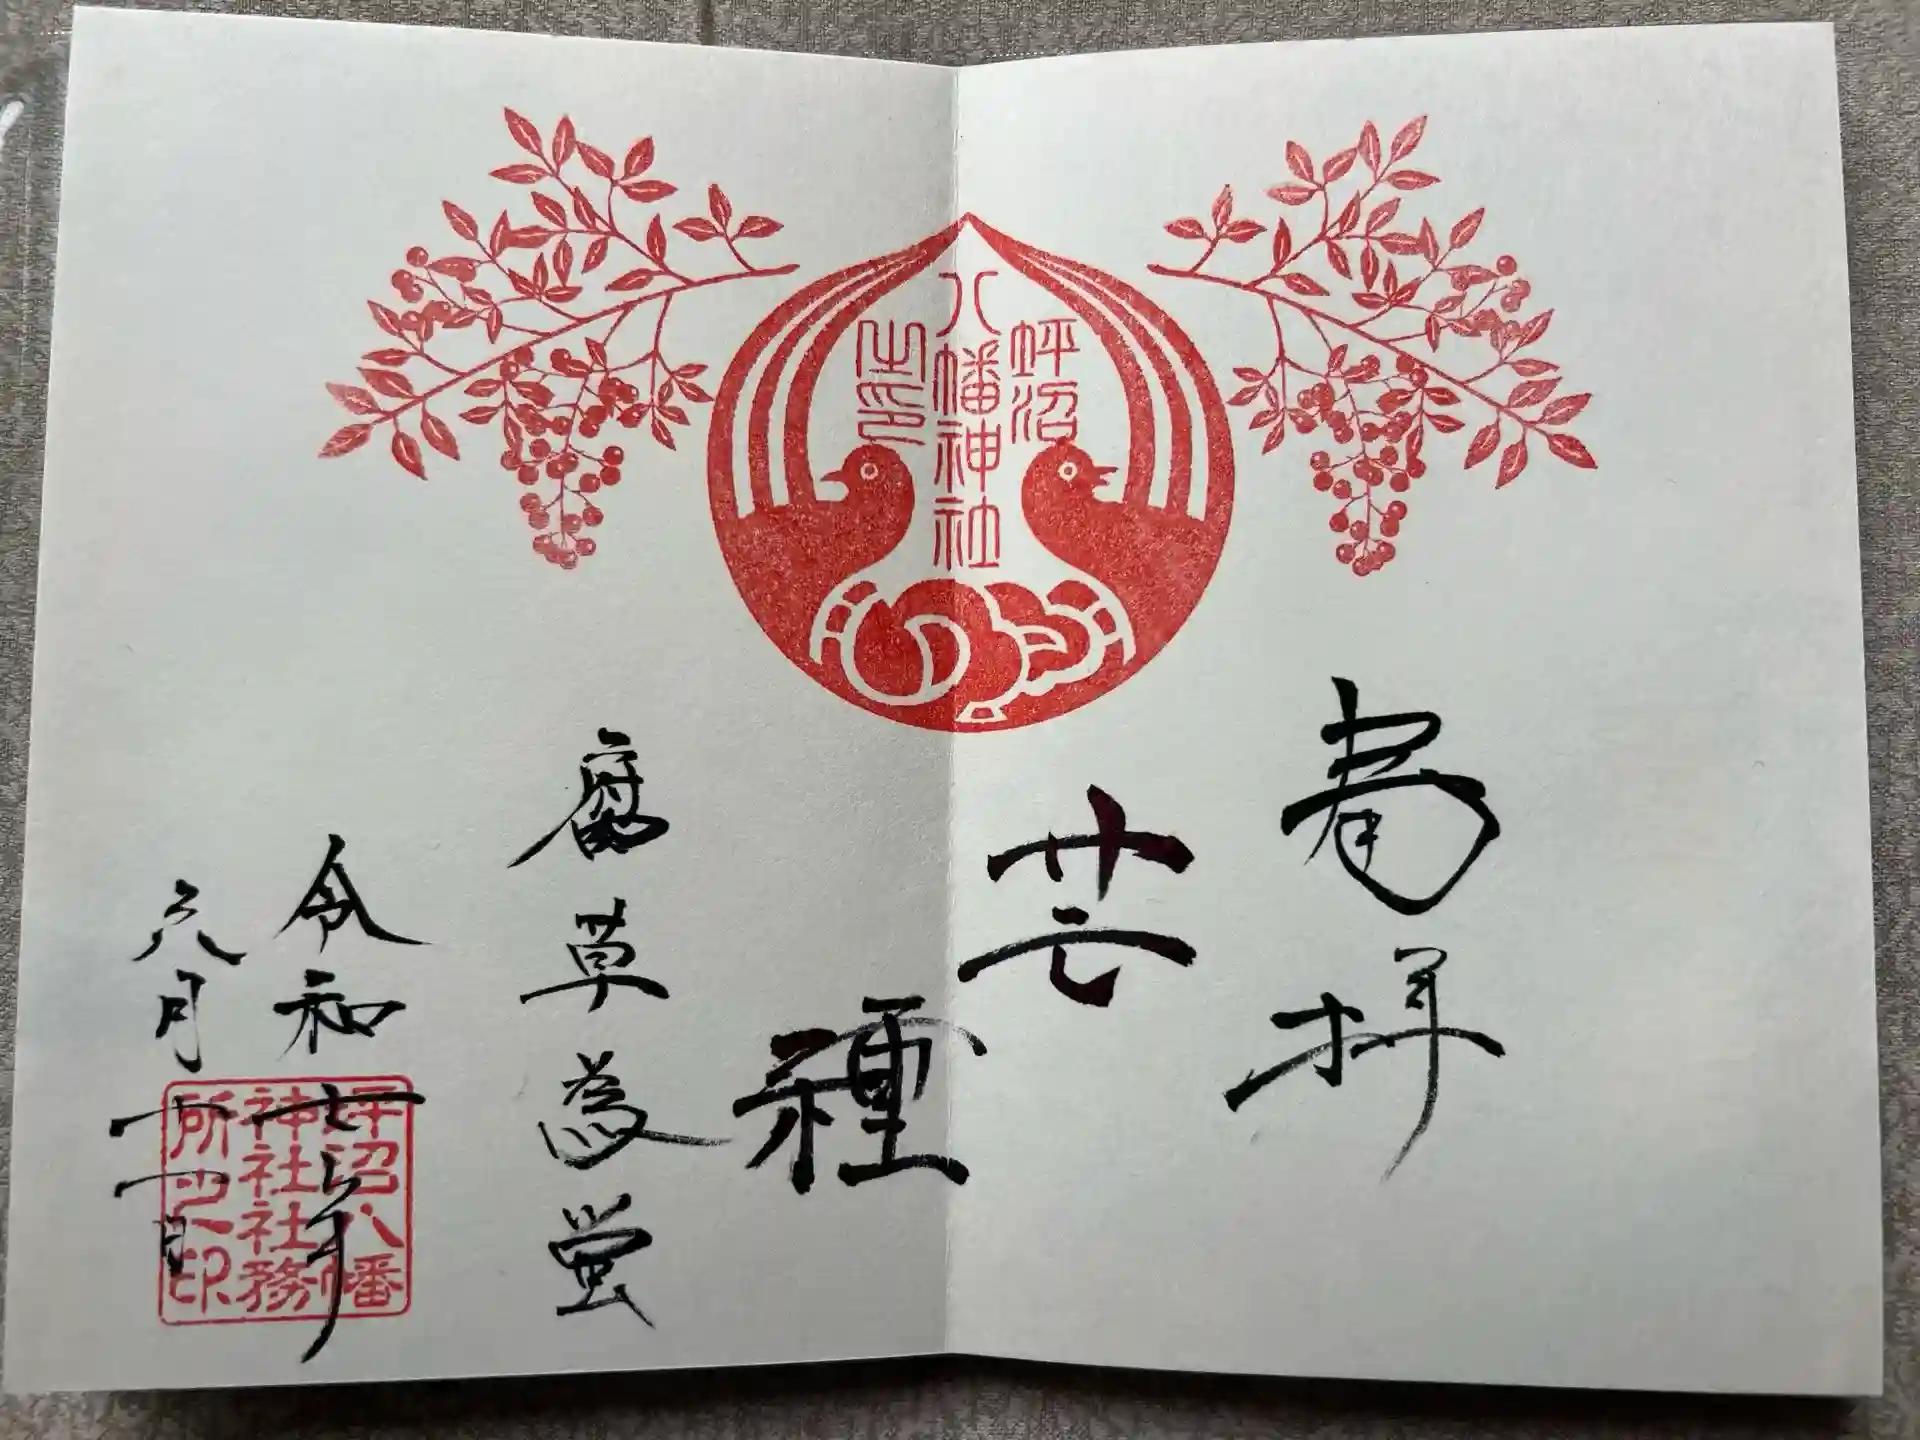 坪沼
八幡神社
之印
奉拝
芒種
腐草為螢
令和七年
六月十一日
坪沼八幡
神社社務
所之印